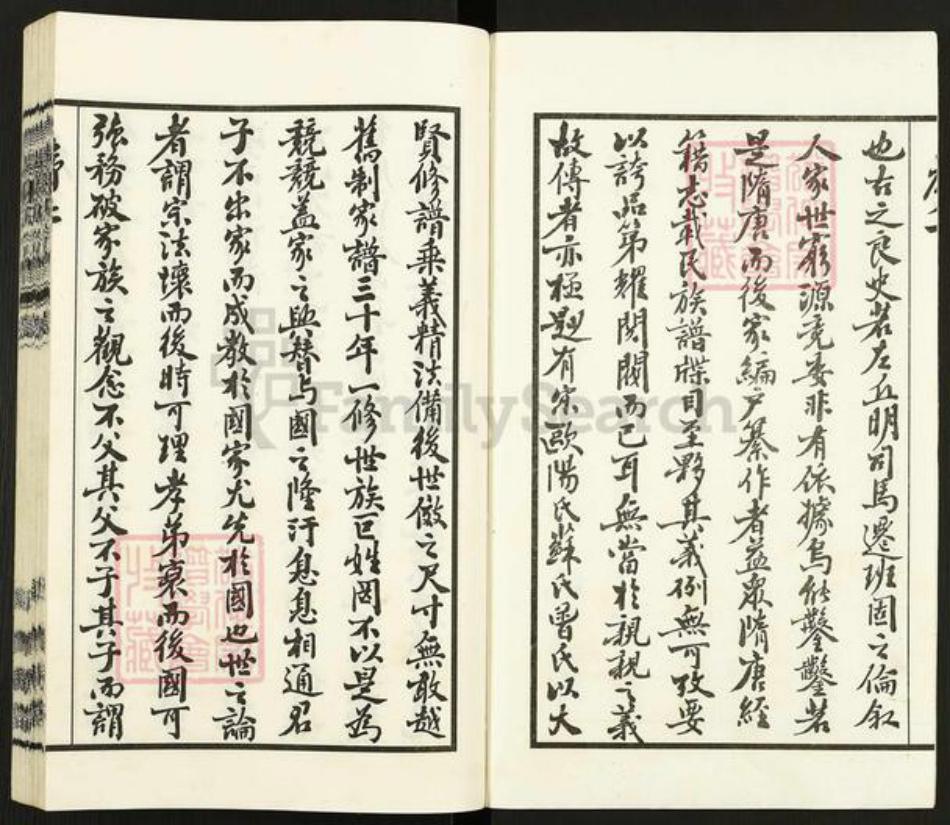 也古之良史若左丘明司馬遷班固之倫叙
人家世窮源竟委非有依據烏能鑿鑿若
是隋唐而後家編户纂作者益衆隋唐經
籍志載氏族譜牒目至夥其義例無可攷要
以誇品第耀閥閱而已耳無當於親親之義
故傳者亦極尟有宋歐陽氏蘇氏曾氏以大
賢修譜乘義精法備後世倣之尺寸無敢越
舊制家譜三十年一修世族巨姓罔不以是為
兢兢蓋家之興替與國之隆汙息息相通君
子不出家而成教於國家尤先於國也世之論
者謂宗法壞而後時可理孝弟衰而後國可
強務破家族之觀念不父其父不子其子而謂
FamilySearch